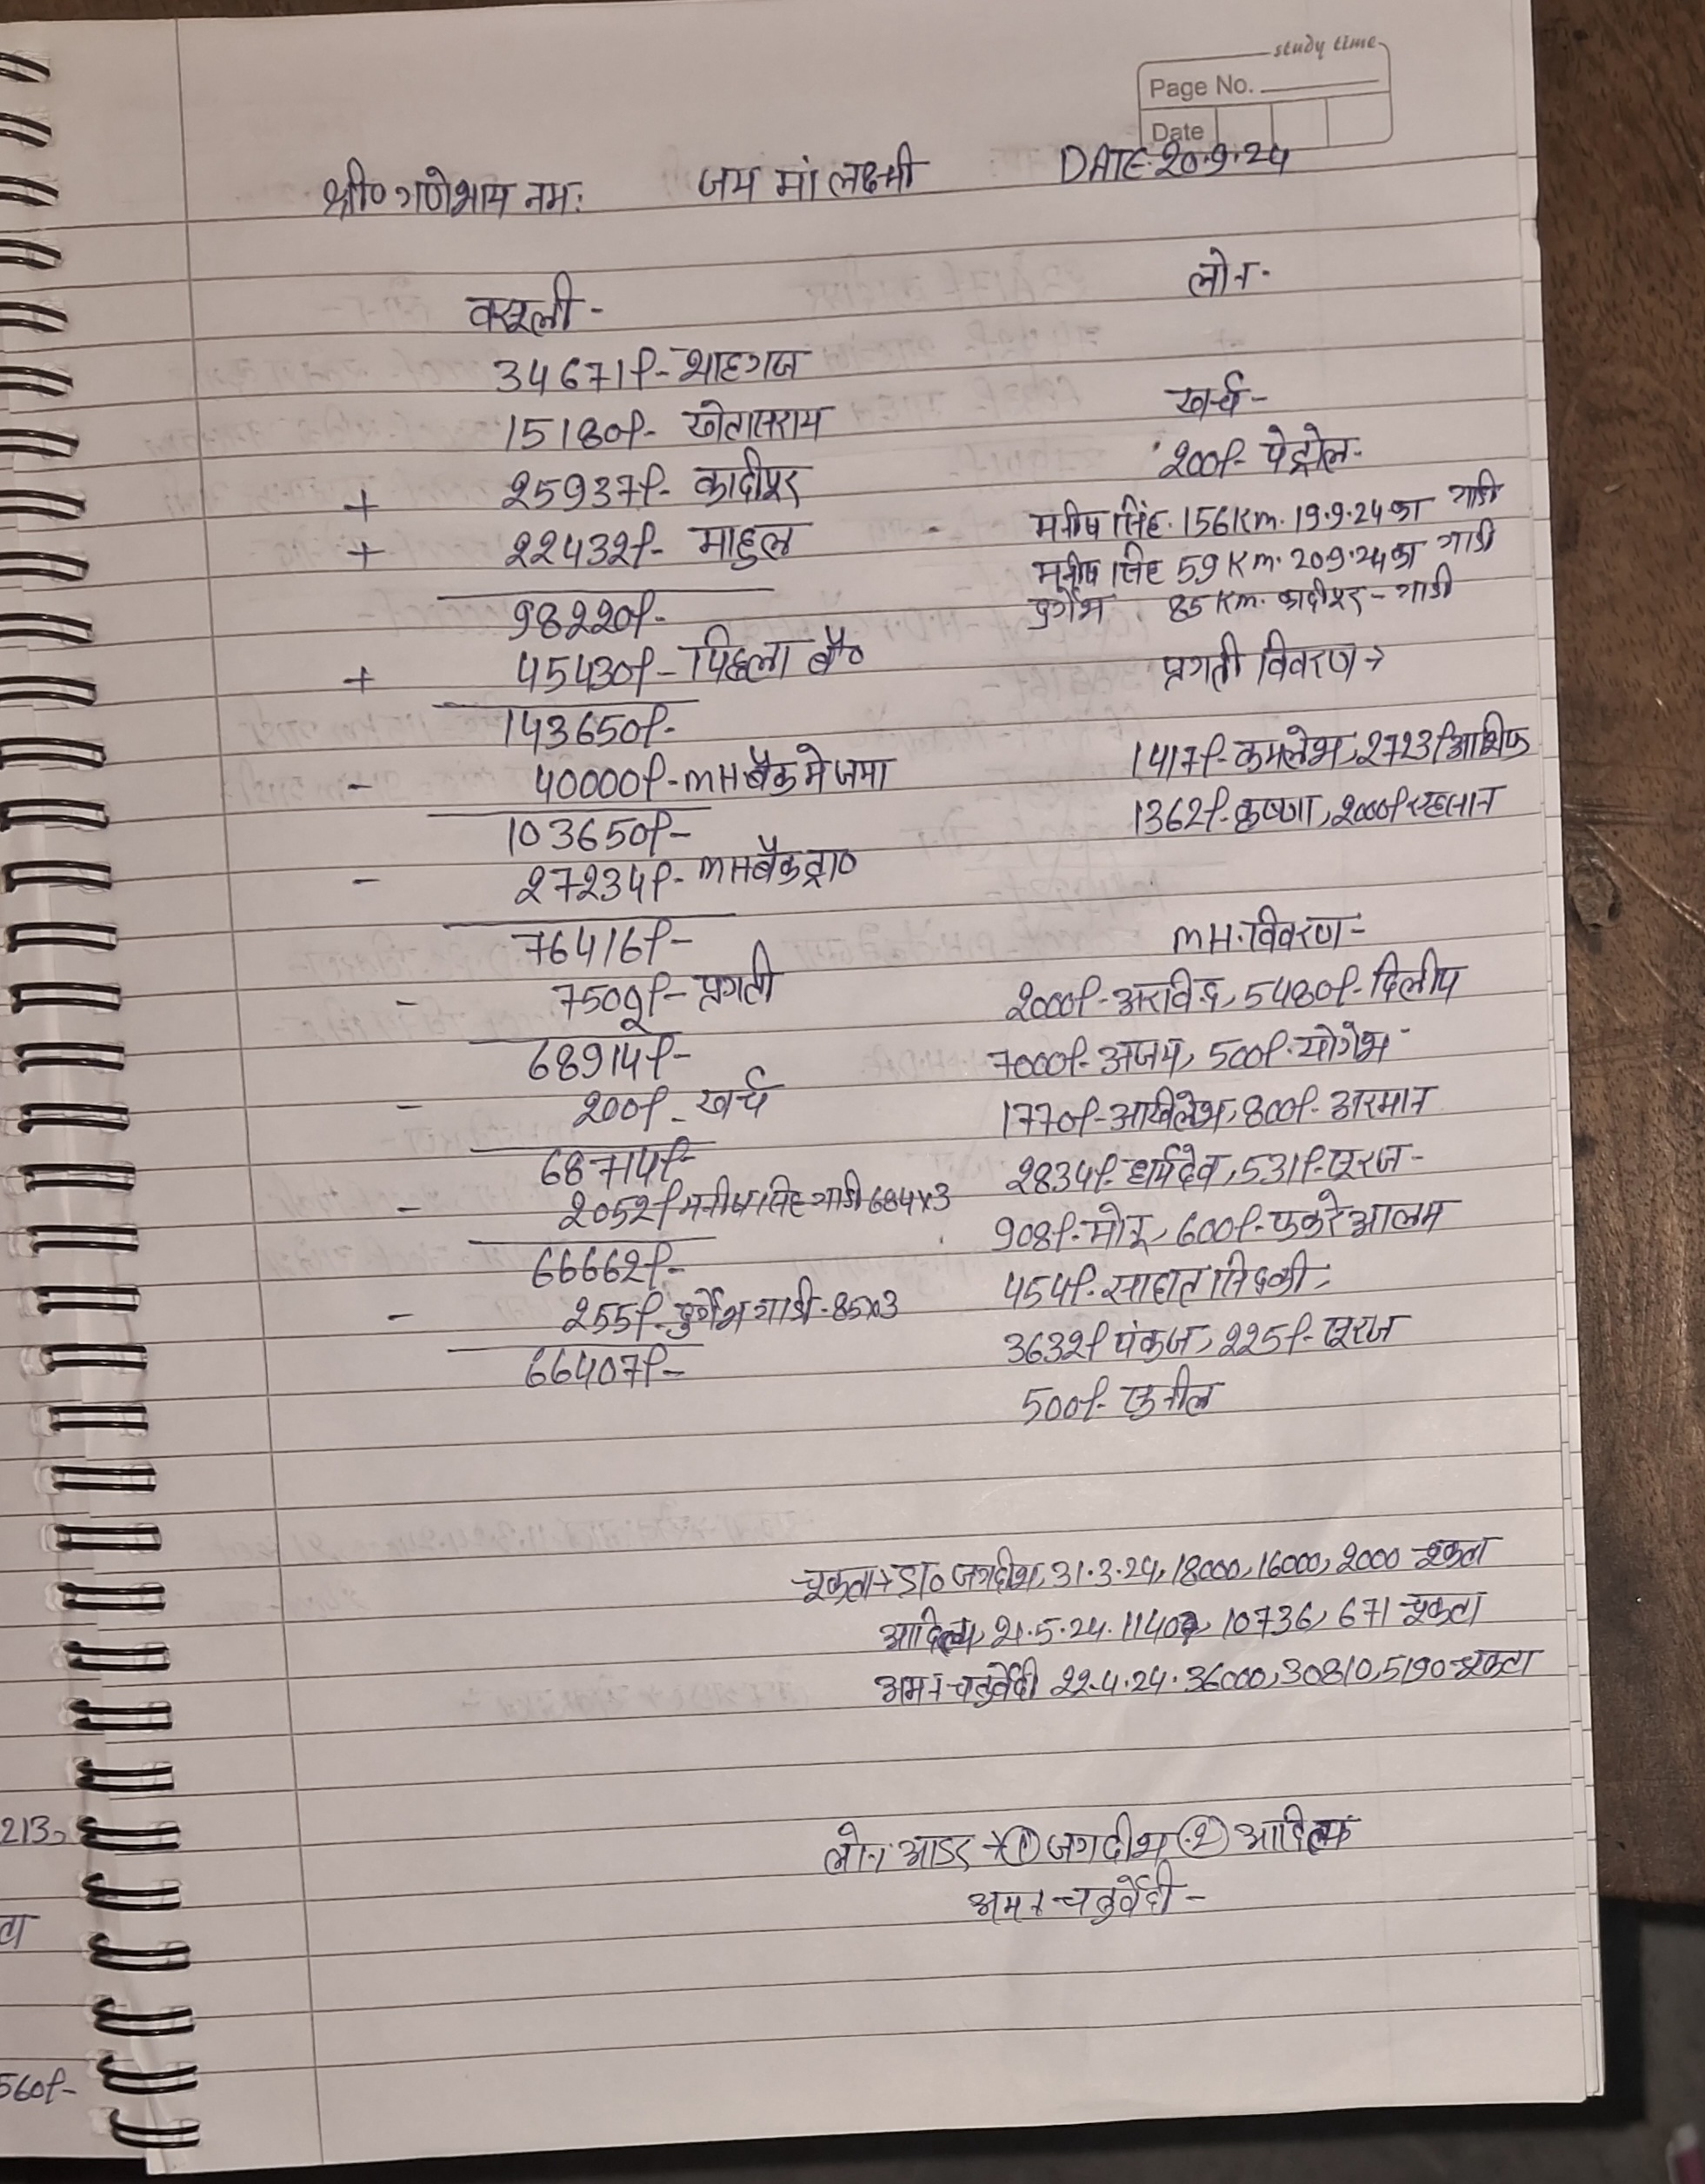 study time
Page No.
Date
श्री० गणेशाय नमः जय मां लक्ष्मी DATE. 20.9.24
वसूली -
34671/- शाहगज
15180/- खेतासराय
+ 25937/- कादीपुर
+ 22432/- माहुल
98220/-
+ 45430/- पिछला बै०
143650/-
- 40000/- MH बैक मे जमा
103650/-
- 27234/- MH बैक ट्रा०
76416/-
- 7502/- प्रगती
68914/-
- 200/- खर्च
68714/-
- 2052/- मनीष सिंह गाडी 684x3
66662/-
- 255/- दुर्गेश गाडी - 85x3
66407/-
लोन -
खर्च -
200/- पेट्रोल -
मनीष सिंह. 156 Km. 19.9.24 का गाडी
मनीष सिंह 59 Km. 20.9.24 का गाडी
दुर्गेश 85 Km. कादीपुर - गाडी
प्रगती विवरण →
1417/- कमलेश, 2723/- आशिफ
1362/- कृष्णा, 2000/-
MH. विवरण -
2000/- अरविन्द, 5480/- दिलीप
7000/- अजय, 500/- योगेश
1770/- अखिलेश, 800/- अरमान
2834/- धर्मदेव, 531/- सूरज -
908/- मोनू, 600/- आलम
454/-
3632/- पंकज, 225/- सूरज
500/- सुनील
चूकता → डा० जगदीश, 31.3.24, 18000, 16000, 2000 चूकता
आदित्य, 21.5.24. 10736, 671 चूकता
अमन चतुर्वेदी 22.4.24. 36000, 30810, 5190 चूकता
लोन आडर → ① जगदीश ② आदित्य
अमन चतुर्वेदी -
213
560/-